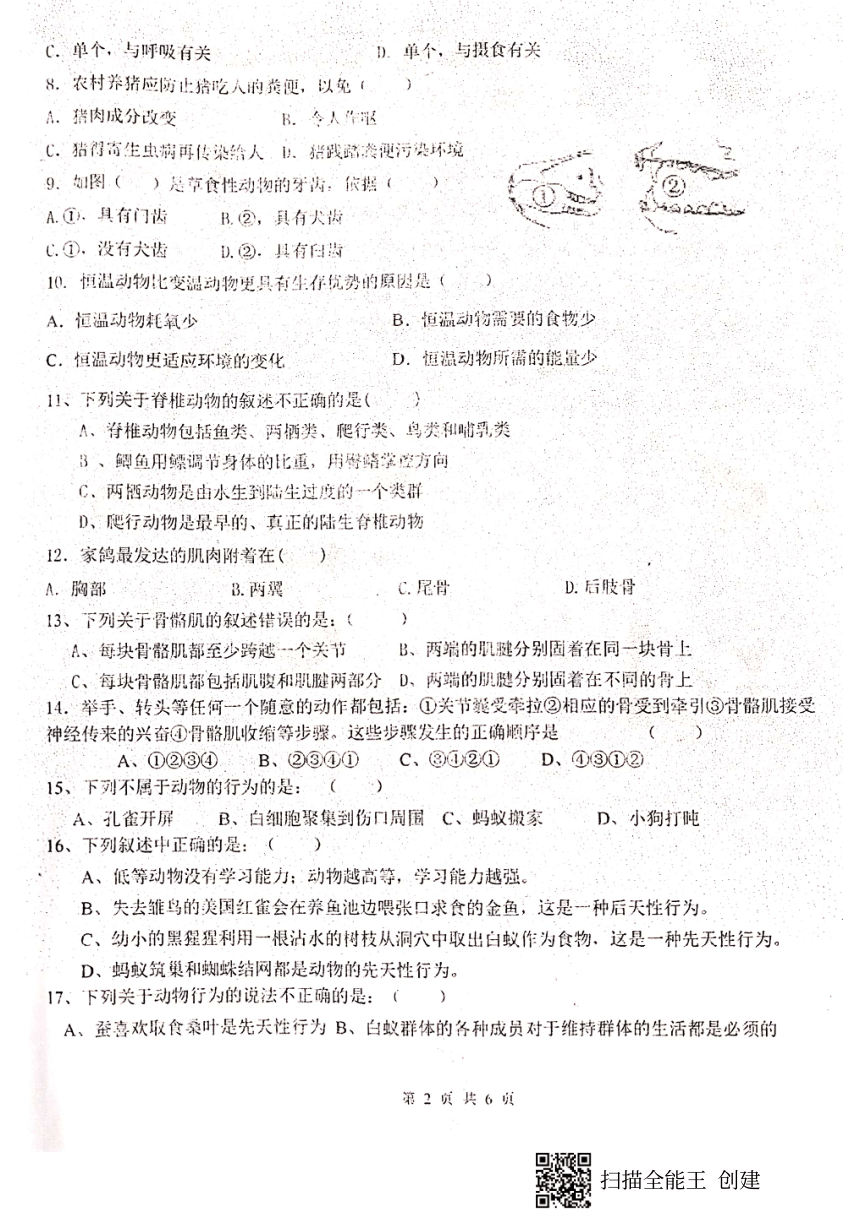 C．单个，与呼吸有关 D．单个，与摄食有关
8．农村养猪应防止猪吃人的粪便，以免（ ）
A．猪肉成分改变 B．令人作呕
C．猪得寄生虫病再传染给人 D．猪践踏粪便污染环境
9．如图（ ）是草食性动物的牙齿，依据（ ）
① ②
A.①，具有门齿 B.②，具有犬齿
C.①，没有犬齿 D.②，具有臼齿
10．恒温动物比变温动物更具有生存优势的原因是（ ）
A．恒温动物耗氧少 B．恒温动物需要的食物少
C．恒温动物更适应环境的变化 D．恒温动物所需的能量少
11、下列关于脊椎动物的叙述不正确的是( )
A、脊椎动物包括鱼类、两栖类、爬行类、鸟类和哺乳类
B 、鲫鱼用鳔调节身体的比重，用臀鳍掌控方向
C、两栖动物是由水生到陆生过度的一个类群
D、爬行动物是最早的、真正的陆生脊椎动物
12．家鸽最发达的肌肉附着在( )
A．胸部 B.两翼 C.尾骨 D.后肢骨
13、下列关于骨骼肌的叙述错误的是：（ ）
A、每块骨骼肌都至少跨越一个关节 B、两端的肌腱分别固着在同一块骨上
C、每块骨骼肌都包括肌腹和肌腱两部分 D、两端的肌腱分别固着在不同的骨上
14．举手、转头等任何一个随意的动作都包括：①关节被受牵拉②相应的骨受到牵引③骨骼肌接受
神经传来的兴奋④骨骼肌收缩等步骤。这些步骤发生的正确顺序是 （ ）
A、①②③④ B、②③④① C、③④②① D、④③①②
15、下列不属于动物的行为的是： （ ）
A、孔雀开屏 B、白细胞聚集到伤口周围 C、蚂蚁搬家 D、小狗打盹
16、下列叙述中正确的是：（ ）
A、低等动物没有学习能力；动物越高等，学习能力越强。
B、失去雏鸟的美国红雀会在养鱼池边喂张口求食的金鱼，这是一种后天性行为。
C、幼小的黑猩猩利用一根沾水的树枝从洞穴中取出白蚁作为食物，这是一种先天性行为。
D、蚂蚁筑巢和蜘蛛结网都是动物的先天性行为。
17、下列关于动物行为的说法不正确的是：（ ）
A、蚕喜欢取食桑叶是先天性行为 B、白蚁群体的各种成员对于维持群体的生活都是必须的
第 2 页 共 6 页
扫描全能王 创建